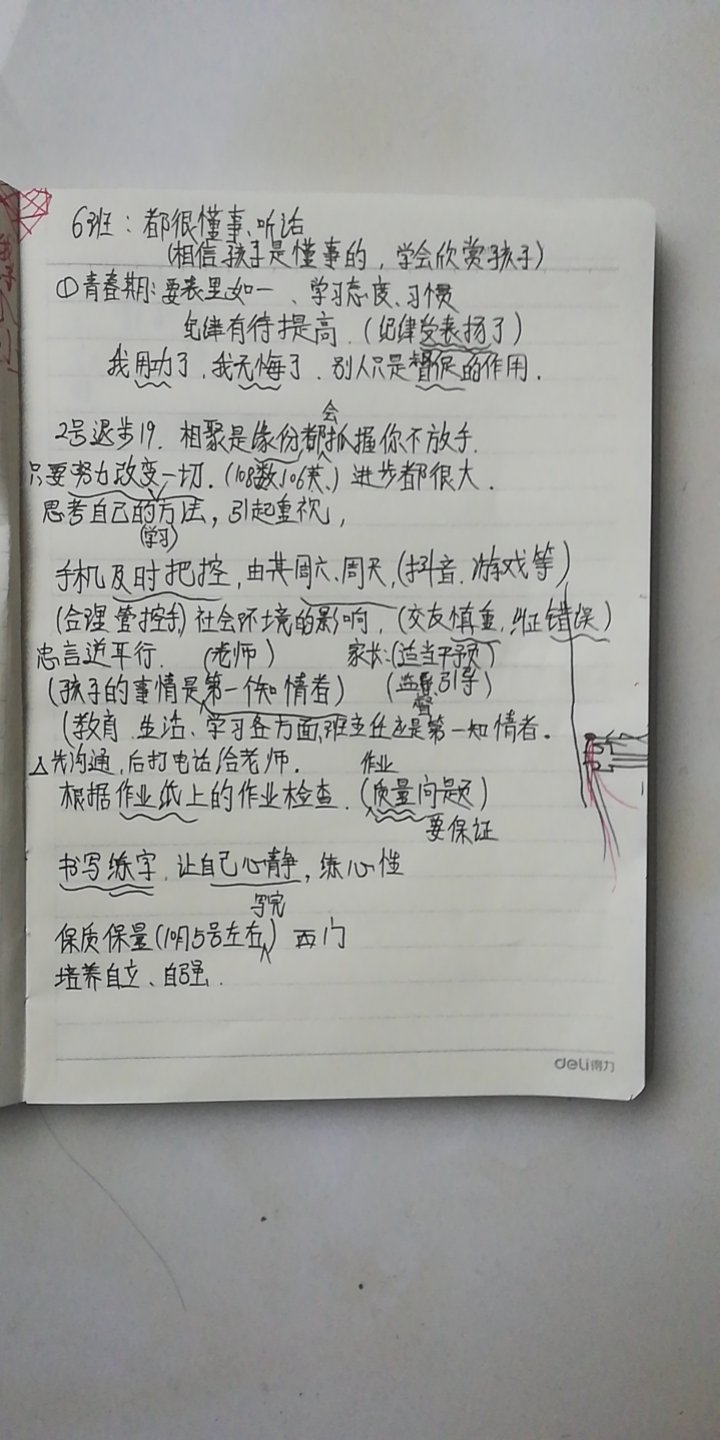 6班：都很懂事、听话
(相信孩子是懂事的，学会欣赏孩子)
①青春期：要表里如一、学习态度、习惯
纪律有待提高.（纪律受表扬了）
我用功了，我无悔了．别人只是督促的作用．
会
2号退步19．相聚是缘份都抓握你不放手．
只要努力改变一切．(108数106英、) 进步都很大．
思考自己的方法，引起重视，
(学习)
手机及时把控，由其周六、周天，(抖音、游戏等)
(合理管控手) 社会环境的影响，(交友慎重，纠正错误)
忠言逆耳行．(老师) 家长:(适当干预)
(孩子的事情是第一个知情者) (监督、引导)
督
(教育、生活、学习各方面，班主任这是第一知情者。
△先沟通，后打电话给老师． 作业
根据作业纸上的作业检查．(质量问题)
要保证
书写练字．让自己心静，练心性
写完
保质保量(10月5号左右) 西门
培养自立、自强．
deli得力